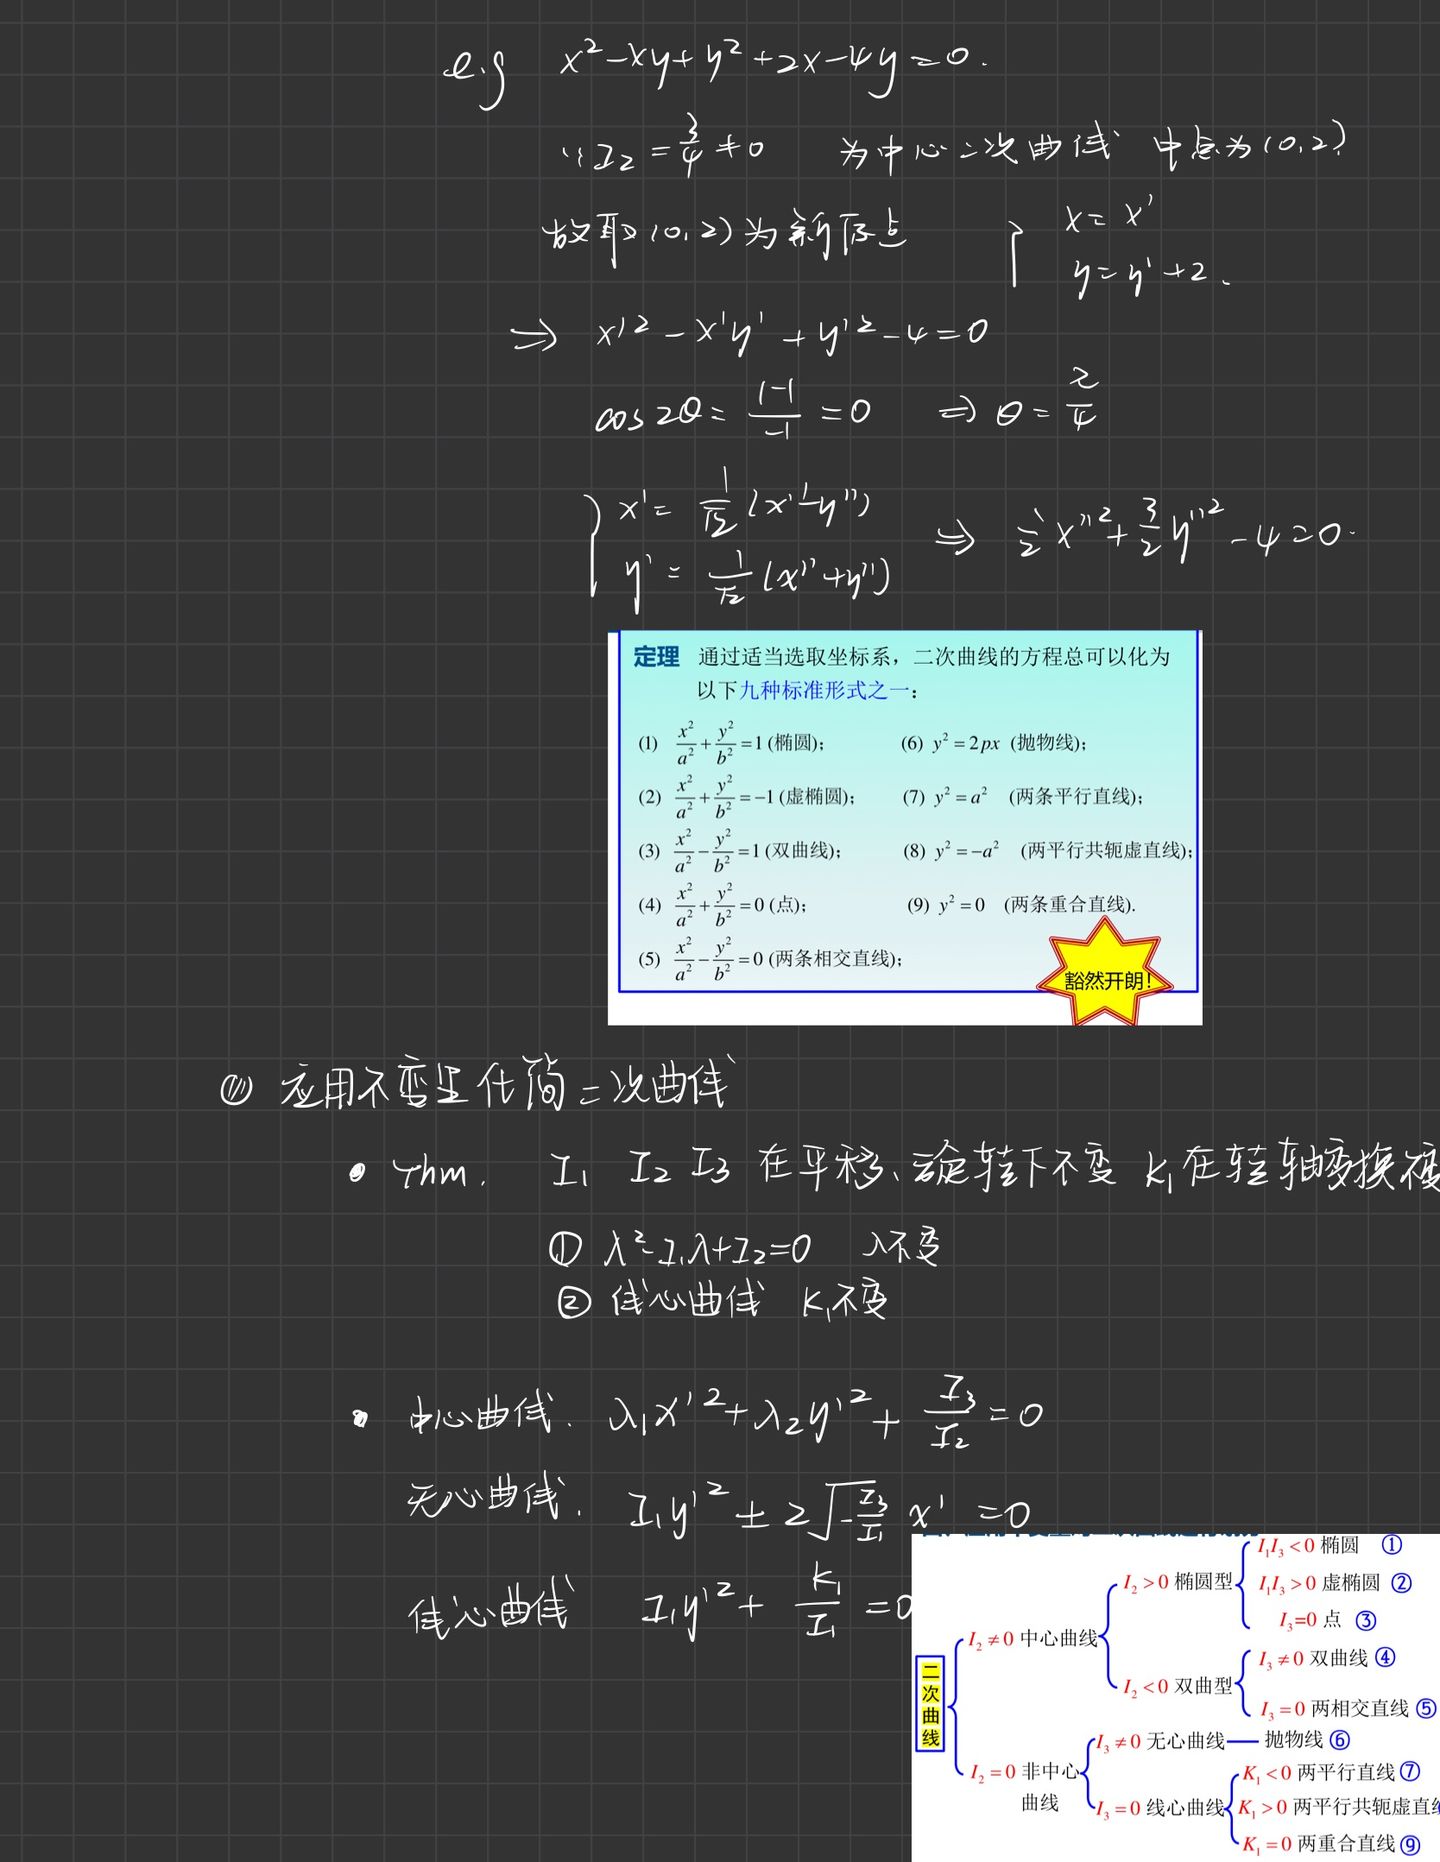 e.g x²-xy+y²+2x-4y=0.
∵I₂=3/4≠0 为中心二次曲线 中点为(0,2)
故取(0,2)为新原点 { x=x'
y=y'+2.
⇒ x'²-x'y'+y'²-4=0
cos2θ=(1-1)/(-1)=0 ⇒ θ=π/4
{ x'=1/√2(x''-y'')
y'=1/√2(x''+y'') ⇒ 1/2x''²+3/2y''²-4=0.
定理 通过适当选取坐标系，二次曲线的方程总可以化为
以下九种标准形式之一：
(1) x²/a²+y²/b²=1 (椭圆); (6) y²=2px (抛物线);
(2) x²/a²+y²/b²=-1 (虚椭圆); (7) y²=a² (两条平行直线);
(3) x²/a²-y²/b²=1 (双曲线); (8) y²=-a² (两平行共轭虚直线);
(4) x²/a²+y²/b²=0 (点); (9) y²=0 (两条重合直线).
(5) x²/a²-y²/b²=0 (两条相交直线);
豁然开朗!
应用不变量化简二次曲线
• Thm. I₁ I₂ I₃ 在平移、旋转下不变 K₁在转轴变换不变
① λ²-I₁λ+I₂=0 λ不变
② 线心曲线 K₁不变
• 中心曲线. λ₁x'²+λ₂y'²+I₃/I₂=0
无心曲线. I₁y'²±2√(-I₃/I₁) x'=0
线心曲线 I₁y'²+K₁/I₁=0
二次曲线
I₂≠0 中心曲线
I₂>0 椭圆型
I₁I₃<0 椭圆 ①
I₁I₃>0 虚椭圆 ②
I₃=0 点 ③
I₂<0 双曲型
I₃≠0 双曲线 ④
I₃=0 两相交直线 ⑤
I₂=0 非中心
曲线
I₃≠0 无心曲线 — 抛物线 ⑥
I₃=0 线心曲线
K₁<0 两平行直线 ⑦
K₁>0 两平行共轭虚直
K₁=0 两重合直线 ⑨